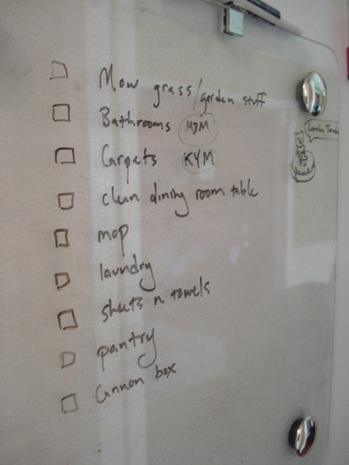 Mow grass/garden stuff
Bathrooms MOM
Carpets KYM
clean dining room table
mop
laundry
sheets n towels
pantry
Cannon box